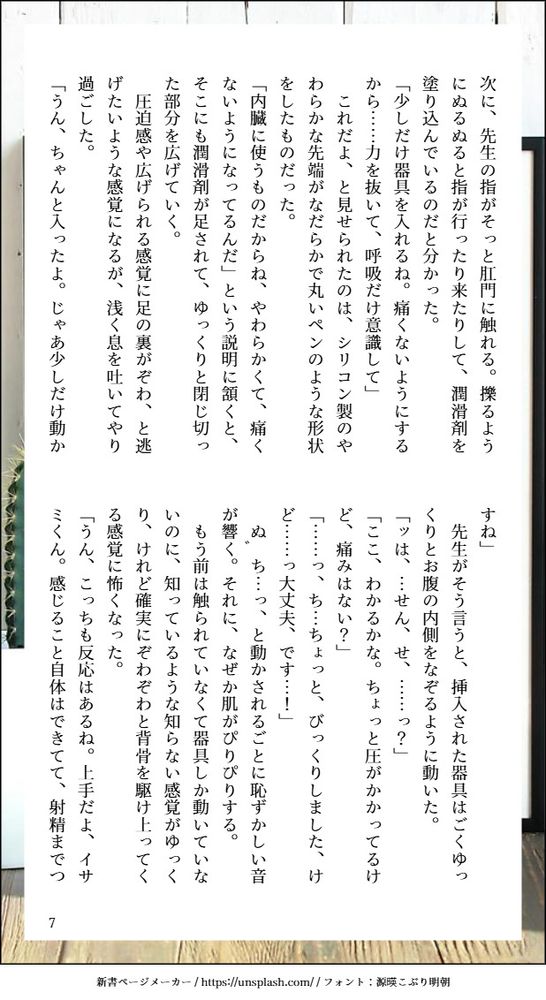 次に、先生の指がそっと肛門に触れる。擽るよう
にぬるぬると指が行ったり来たりして、潤滑剤を
塗り込んでいるのだと分かった。
「少しだけ器具を入れるね。痛くないようにする
から……力を抜いて、呼吸だけ意識して」
　これだよ、と見せられたのは、シリコン製のや
わらかな先端がなだらかで丸いペンのような形状
をしたものだった。
「内臓に使うものだからね、やわらかくて、痛く
ないようになってるんだ」という説明に頷くと、
そこにも潤滑剤が足されて、ゆっくりと閉じ切っ
た部分を広げていく。
　圧迫感や広げられる感覚に足の裏がぞわ、と逃
げたいような感覚になるが、浅く息を吐いてやり
過ごした。
「うん、ちゃんと入ったよ。じゃあ少しだけ動か
すね」
　先生がそう言うと、挿入された器具はごくゆっ
くりとお腹の内側をなぞるように動いた。
「ッは、…せん、せ、……っ？」
「ここ、わかるかな。ちょっと圧がかかってるけ
ど、痛みはない？」
「……っ、ち…ちょっと、びっくりしました、け
ど……っ大丈夫、です…！」
　ぬ゛ち…っ、と動かされるごとに恥ずかしい音
が響く。それに、なぜか肌がぴりぴりする。
　もう前は触られていなくて器具しか動いていな
いのに、知っているような知らない感覚がゆっく
り、けれど確実にぞわぞわと背骨を駆け上ってく
る感覚に怖くなった。
「うん、こっちも反応はあるね。上手だよ、イサ
ミくん。感じること自体はできてて、射精までつ
7
新書ページメーカー / https://unsplash.com// / フォント：源暎こぶり明朝